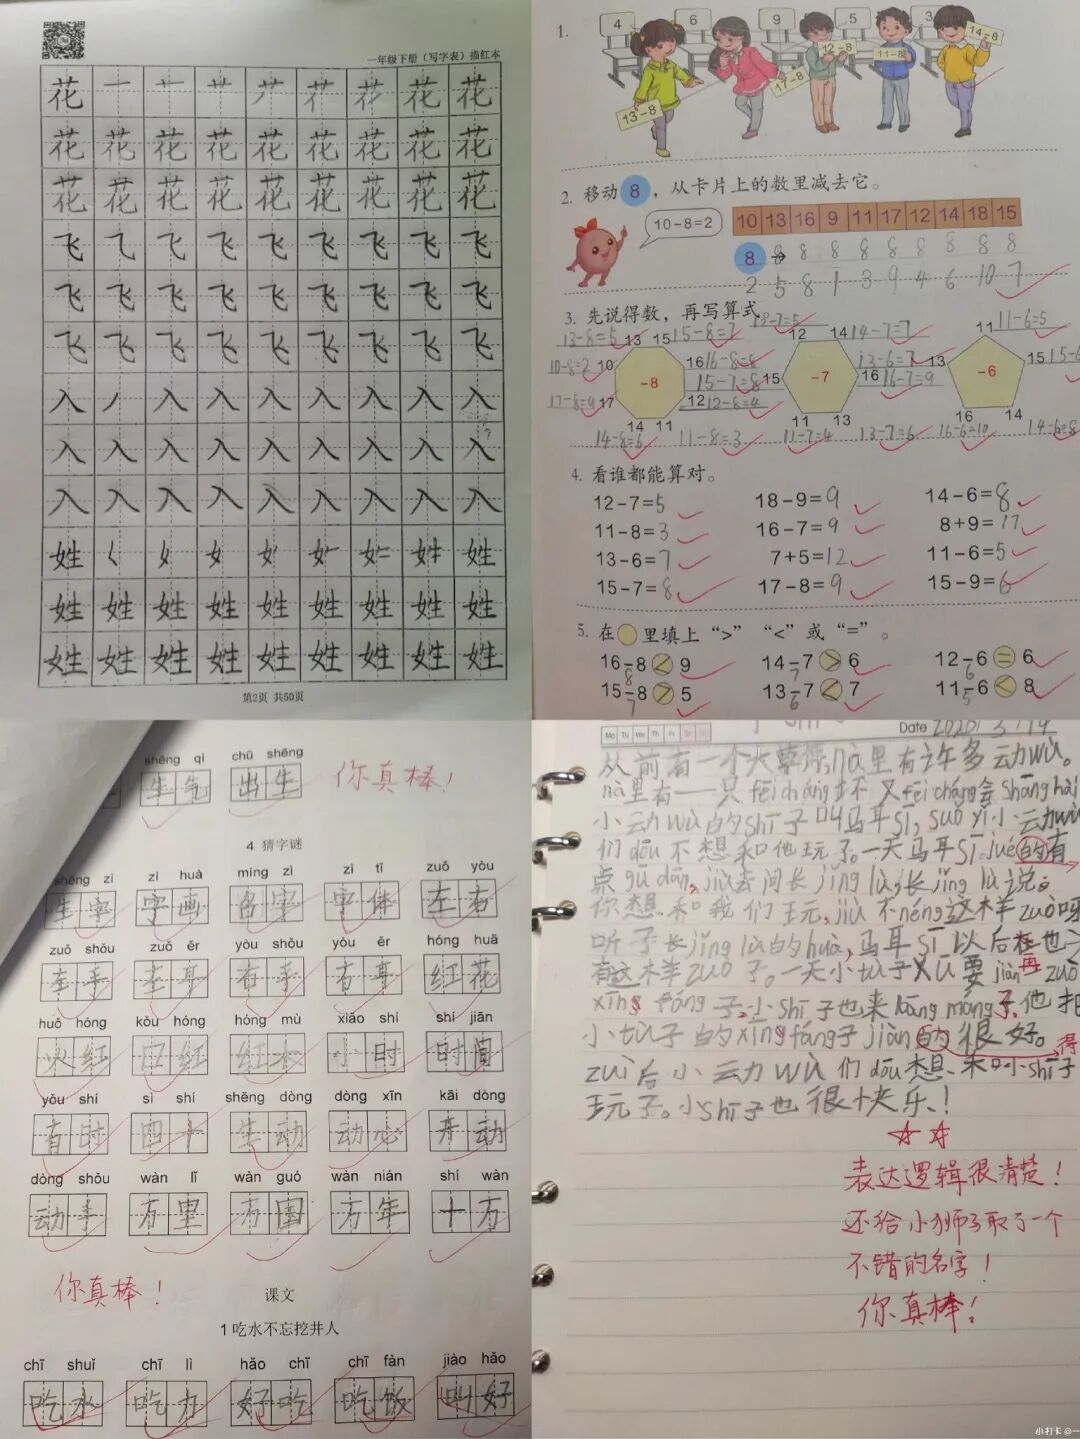 一年级下册（写字表）描红本
花 一 艹 艹 花 花 花 花
花 花 花 花 花 花 花 花 花
花 花 花 花 花 花 花 花 花
飞 飞 飞 飞 飞 飞 飞 飞
飞 飞 飞 飞 飞 飞 飞 飞 飞
飞 飞 飞 飞 飞 飞 飞 飞 飞
入 丿 入 入 入 入 入 入 入
入 入 入 入 入 入 入 入 入
入 入 入 入 入 入 入 入 入
姓 女 女 姓 姓
姓 姓 姓 姓 姓 姓 姓 姓 姓
姓 姓 姓 姓 姓 姓 姓 姓 姓
第2页 共50页
1.
4 6 9 5 3
13-8 17-8 12-8 11-8 14-8
2. 移动 8 ，从卡片上的数里减去它。
10-8=2
10 13 16 9 11 17 12 14 18 15
8 8 8 8 8 8 8 8 8 8
2 5 8 1 3 9 4 6 10 7
3. 先说得数，再写算式
13-8=5 13 15 15-8=7 12-7=5 12 14 14-7=7 11 11-6=5
10-8=2 10 16 16-8=8 13-6=7 13 15 15-6
-8 15-7=8 15 -7 16 16-7=9 -6
17-8=9 17 12 12-8=4
14 11 11 13 16 14
14-8=6 11-8=3 11-7=4 13-7=6 16-6=10 14-6=8
4. 看谁都能算对。
12-7=5 18-9=9 14-6=8
11-8=3 16-7=9 8+9=17
13-6=7 7+5=12 11-6=5
15-7=8 17-8=9 15-9=6
5. 在 里填上“>”“<”或“=”。
16-8 < 9 14-7 > 6 12-6 = 6
8 7 6
15-8 > 5 13-7 < 7 11-6 < 8
7 6 5
shēng qì chū shēng
生气 出生 你真棒！
4 猜字谜
shēng zì zì huà míng zì zì tǐ zuǒ yòu
生字 字画 名字 字体 左右
zuǒ shǒu zuǒ ěr yòu shǒu yòu ěr hóng huā
左手 左耳 右手 右耳 红花
huǒ hóng kǒu hóng hóng mù xiǎo shí shí jiān
火红 口红 红木 小时 时间
yǒu shí sì shí shēng dòng dòng xīn kāi dòng
有时 四十 生动 动心 开动
dòng shǒu wàn lǐ wàn guó wàn nián shí wàn
动手 万里 万国 万年 十万
你真棒！
课文
1 吃水不忘挖井人
chī shuǐ chī lì hǎo chī chī fàn jiào hǎo
吃水 吃力 好吃 吃饭 叫好
Mo Tu We Th Fr Sa Su Date
从前有一个大草原,nà里有许多动wù。
nà里有一只fēi cháng坏又fēi cháng会shāng hài
小动wù的shī子叫马耳sī, suǒ yǐ小动wù
们dōu不想和他玩了。一天马耳sī jué的有
点gū dān, jiù去问长jǐng lù,长jǐng lù说:
你想和我们玩, jiù不néng这样zuò呀
听了长jǐng lù的huà,马耳sī以后再也
有这样zuò了。一天小tù子又要jiàn zuò
xīn fáng子,小shī子也来bāng máng了,他把
小tù子的xīn fáng子jiàn的很好。得
zuì后小动wù们dōu想和小shī子
玩了。小shī子也很快乐！
表达逻辑很清楚！
还给小狮子取了一个
不错的名字！
你真棒！
小打卡